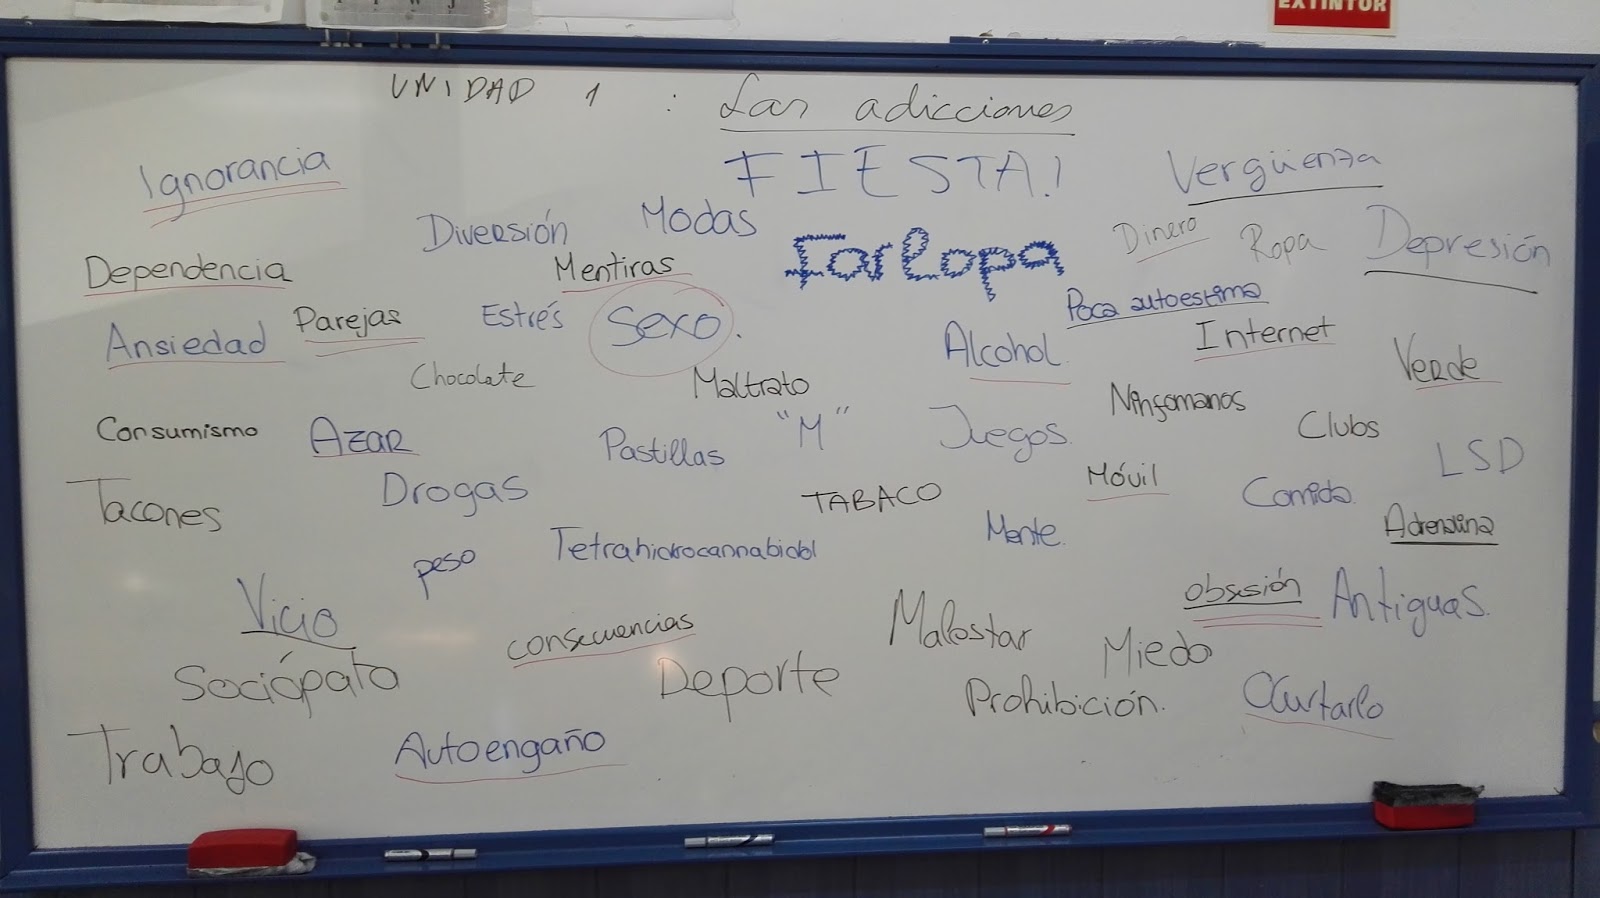 EXTINTOR
UNIDAD 1 : Las adicciones
Ignorancia
FIESTA!
Vergüenza
Diversión
Modas
Farlopa
Dinero
Ropa
Depresión
Dependencia
Mentiras
Poca autoestima
Ansiedad
Parejas
Estrés
Sexo.
Alcohol.
Internet
Verde
Chocolate
Maltrato
Ninfomanos
Consumismo
Azar
Pastillas
"M"
Juegos.
Clubs
LSD
Tacones
Drogas
TABACO
Móvil
Comida.
Adrenalina
peso
Tetrahidrocannabidol
Mente.
Vicio
obsesión
Antiguas.
consecuencias
Malestar
Miedo
Sociópata
Deporte
Prohibición.
Trabajo
Autoengaño